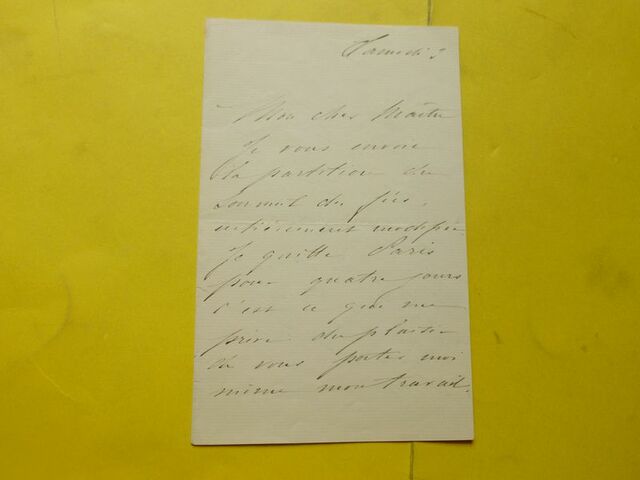 Samedi
Mon cher Maître
Je vous envoie
la partition du
Sommeil des fées,
entièrement modifiée
Je quitte Paris
pour quatre jours
c'est ce qui me
prive du plaisir
de vous porter moi
même mon travail.